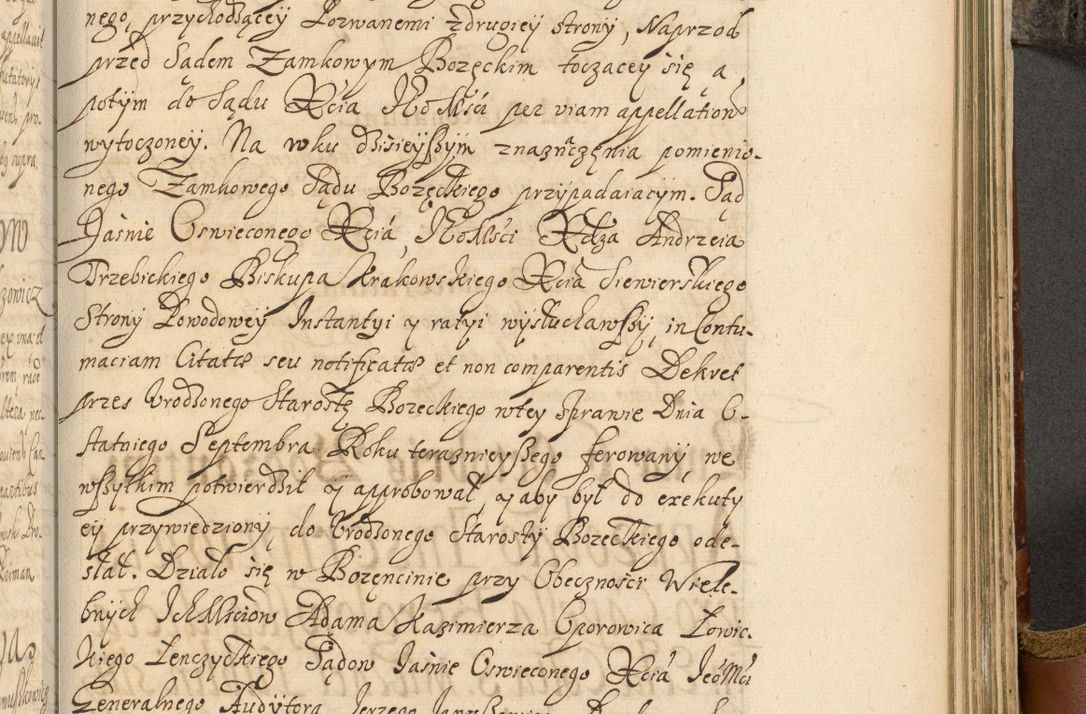 nego, przychodzącey Pozwanemi zdrugiey strony, Naprzod
przed Sądem Zamkowym Bozęckim toczącey się a
potym do Sądu Xcia JEoMści per viam appellation
wytoczoney. Na wku dzisieyszym znaznaczęnia pomienio-
nego Zamkowego Sądu Bozęckiego przypadaiacym. Sąd
Jasnie Oswieconego Xcia JEoMści Xdza Andrzeia
Trzebickiego Biskupa Krakowskiego Xcia Siewierskiego
Strony Powodowey Instantyi y ratyi wysłuchawszy, in Contu-
maciam Citatae seu notificatae et non comparentis Dekret
przes Urodzonego Starostę Bozeckiego wtey Sprawie Dnia O-
statniego Septembra Roku teraznieyszego ferowany, we
wszytkim potwierdził y approbował, y aby był do exekuty
ey przywiedziony, do Urodzonego Starosty Bozeckiego ode-
słał. Działo się w Bozęncinie przy Obecznosci Wiele-
bnych IchMsciow Adama Kazimierza Oporowica Łowic-
kiego Łenczyckiego Sądow Jasnie Oswieconego Xcia JeoMci
Generalnego Audytora Jerzego